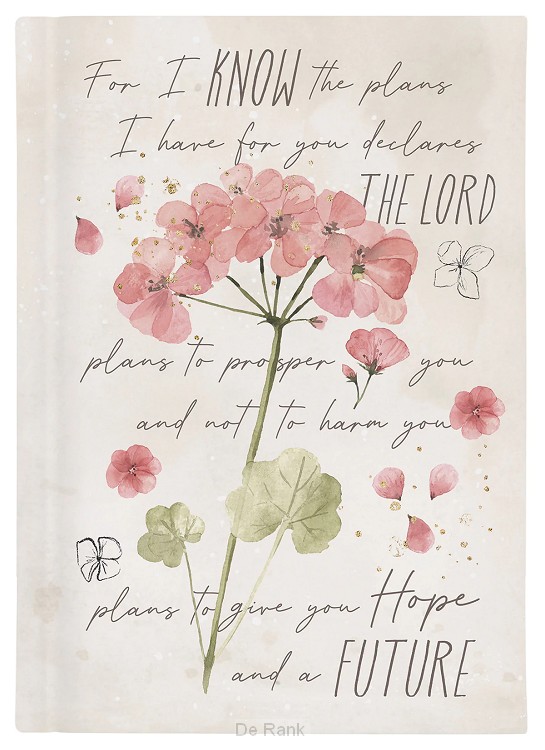 For I KNOW the plans
I have for you declares
THE LORD
plans to prosper you
and not to harm you
plans to give you Hope
and a FUTURE
De Rank